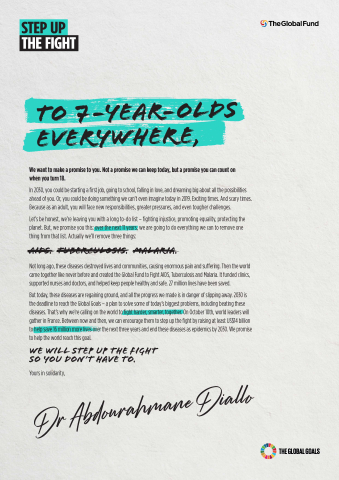 STEP UP
THE FIGHT
TheGlobalFund
TO 7-YEAR-OLDS
EVERYWHERE,
We want to make a promise to you. Not a promise we can keep today, but a promise you can count on
when you turn 18.
In 2030, you could be starting a first job, going to school, falling in love, and dreaming big about all the possibilities
ahead of you. Or, you could be doing something we can't even imagine today in 2019. Exciting times. And scary times.
Because as an adult, you will face new responsibilities, greater pressures, and even tougher challenges.
Let's be honest, we're leaving you with a long to-do list – fighting injustice, promoting equality, protecting the
planet. But, we promise you this: over the next 11 years, we are going to do everything we can to remove one
thing from that list. Actually we'll remove three things:
AIDS. TUBERCULOSIS. MALARIA.
Not long ago, these diseases destroyed lives and communities, causing enormous pain and suffering. Then the world
came together like never before and created the Global Fund to Fight AIDS, Tuberculosis and Malaria. It funded clinics,
supported nurses and doctors, and helped keep people healthy and safe. 27 million lives have been saved.
But today, these diseases are regaining ground, and all the progress we made is in danger of slipping away. 2030 is
the deadline to reach the Global Goals – a plan to solve some of today's biggest problems, including beating these
diseases. That's why we're calling on the world to fight harder, smarter, together. On October 10th, world leaders will
gather in France. Between now and then, we can encourage them to step up the fight by raising at least US$14 billion
to help save 16 million more lives over the next three years and end these diseases as epidemics by 2030. We promise
to help the world reach this goal.
WE WILL STEP UP THE FIGHT
SO YOU DON'T HAVE TO.
Yours in solidarity,
Dr Abdourahmane Diallo
THE GLOBAL GOALS